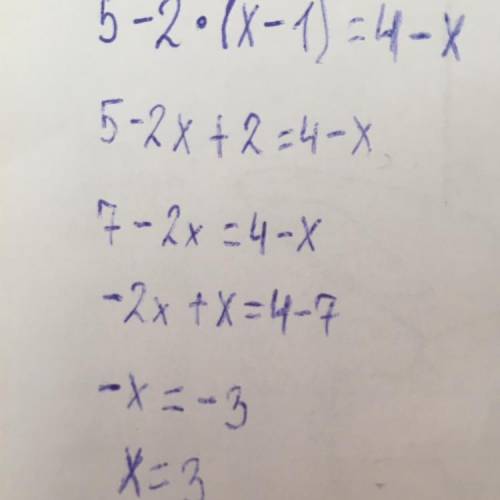 5-2•(x-1)=4-x
5-2x+2=4-x
7-2x=4-x
-2x+x=4-7
-x=-3
x=3